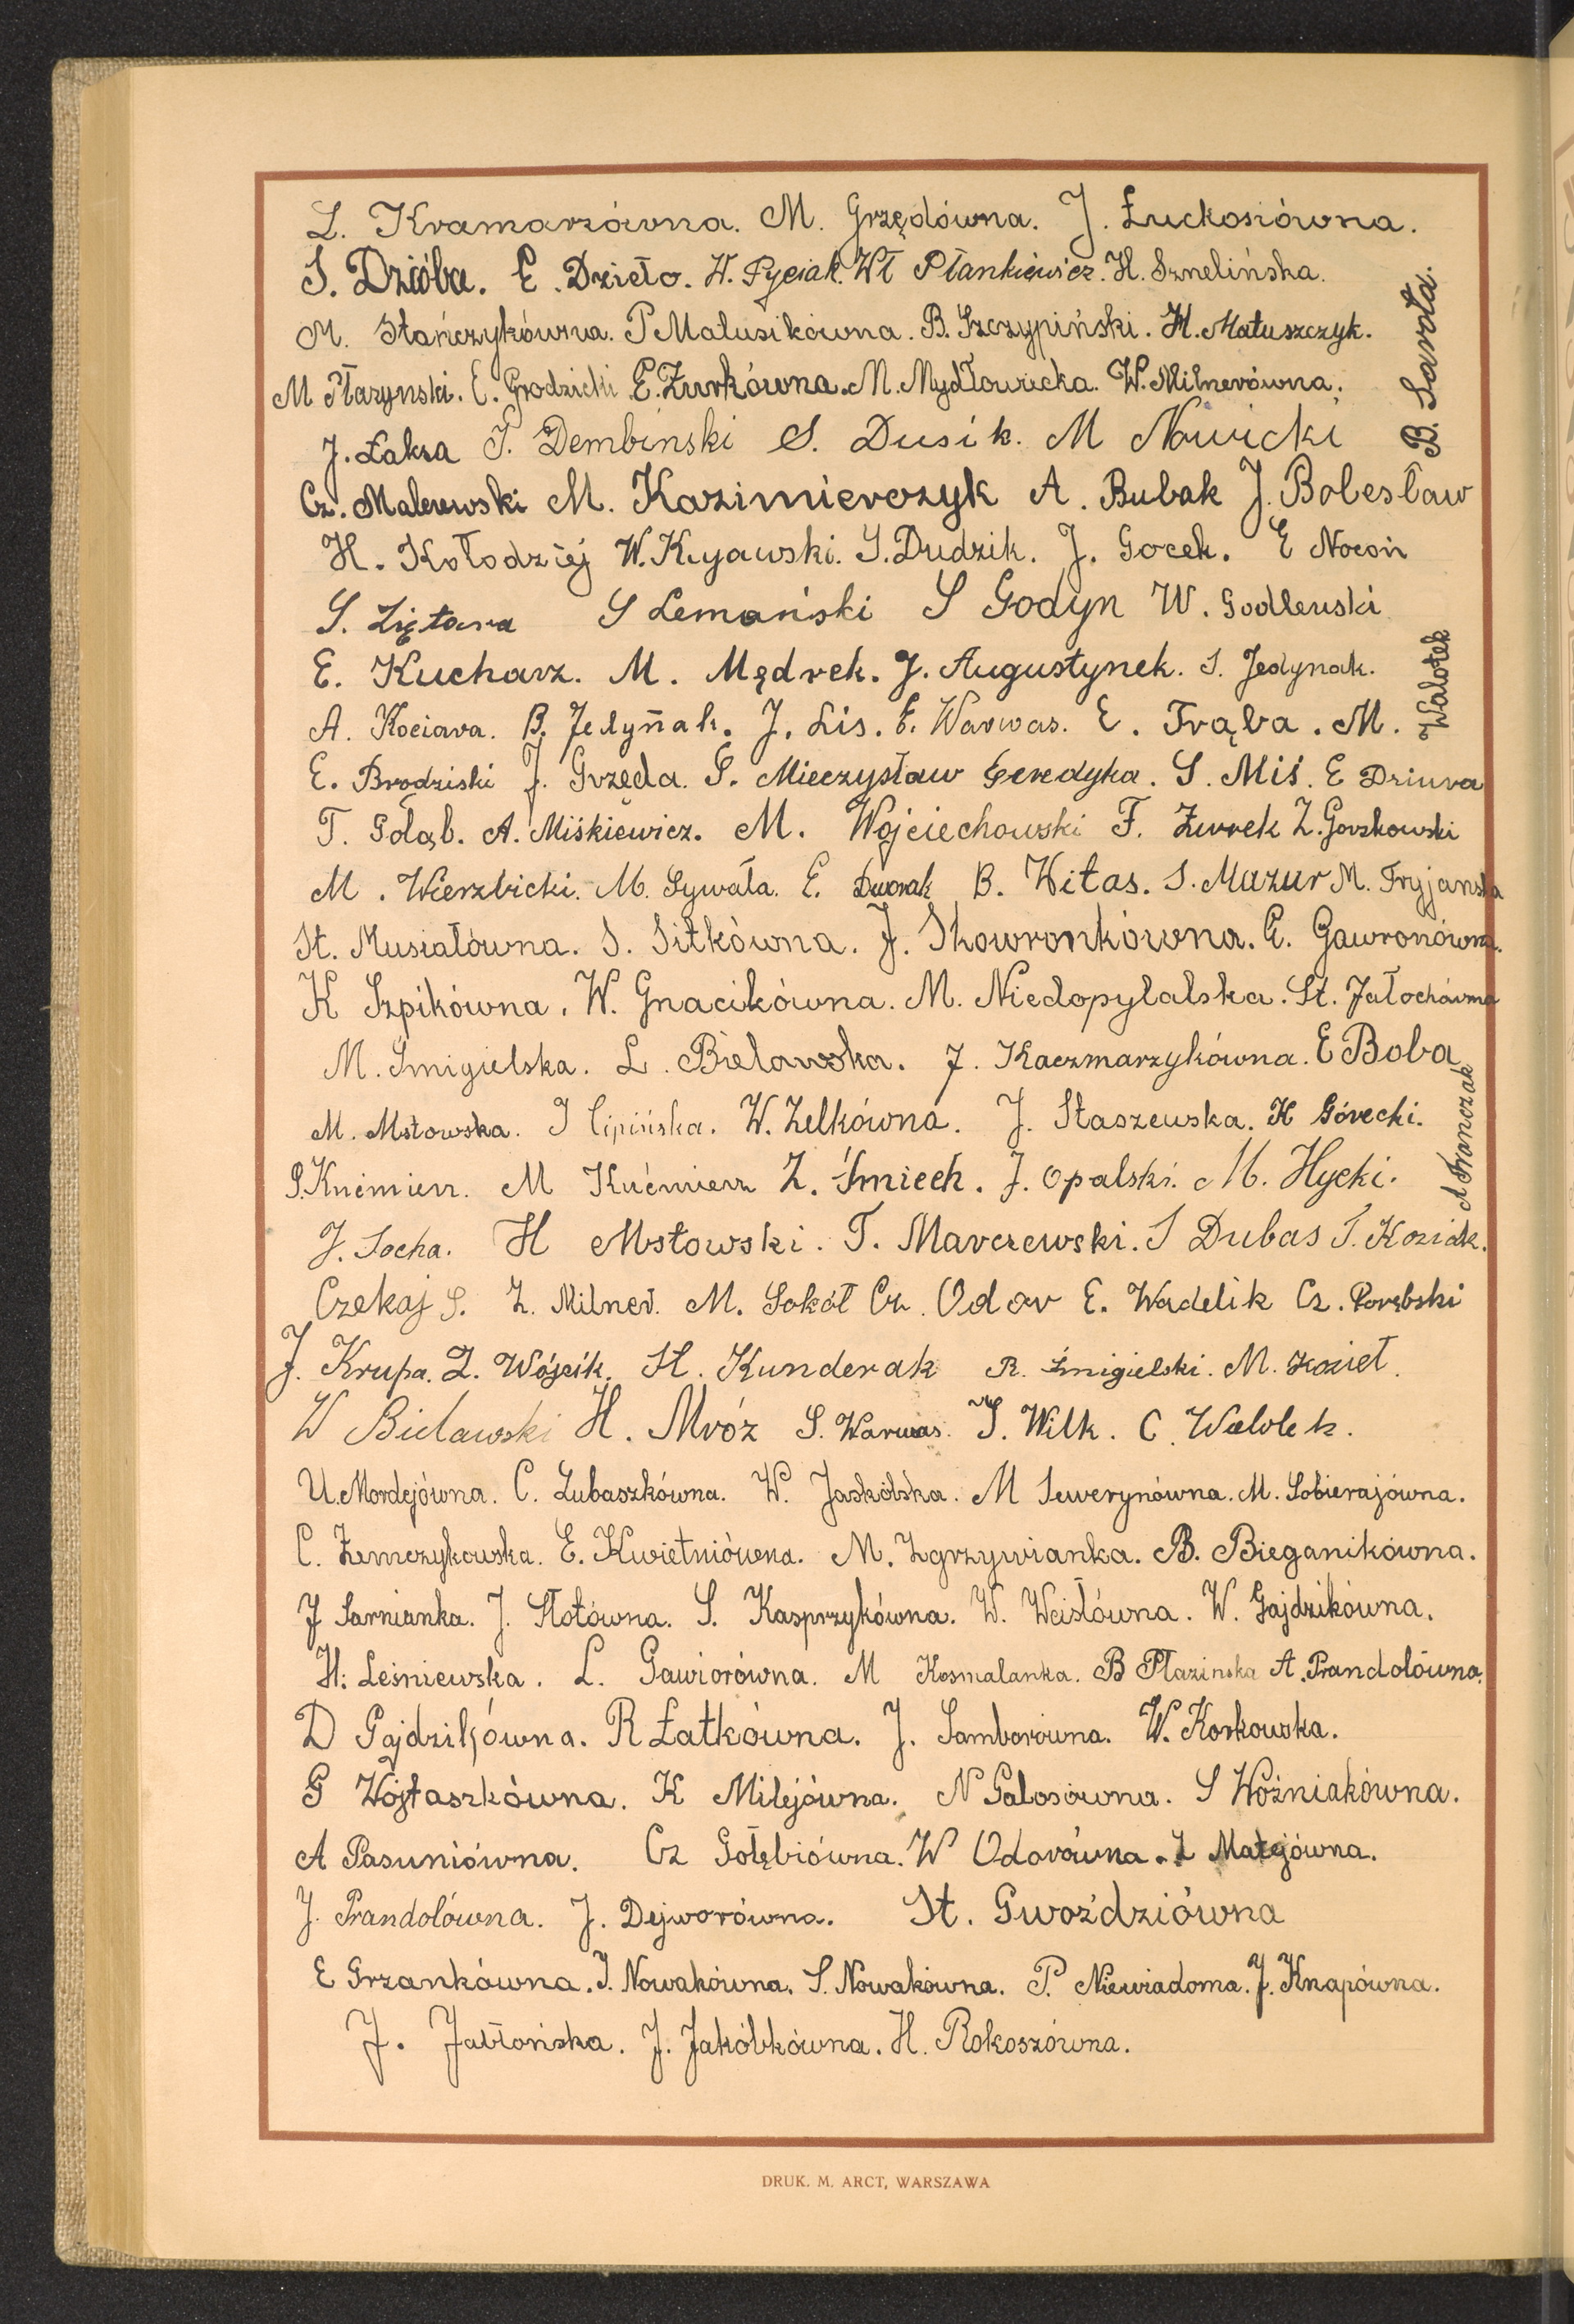 L. Kramarzówna. M. Grzędówna. J. Łuckosiówna.
S. Dzióba. E. Dzieło. W. Pyciak. Wł Płankiewicz. H. Szmelińska.
M. Stańczykówna. P Malusikówna. B. Szczypiński. H. Matuszczyk.
B. Sarota.
M Płazynski. E. Grodzicki E. Żurkówna. M. Mydłowiecka. W. Milnerówna.
J. Łaksa T. Dembinski S. Dusik. M Nowicki
Cz. Malerewski M. Kazimierczyk A. Bubak J. Bolesław
H. Kołodziej W. Kujawski. S. Dudzik. J. Gocek. E Nocoń
S. Ziętara S Lemański S Godyn W. Godlewski
E. Kucharz. M. Mędrek. J. Augustynek. S. Jedynak.
A. Kociara. B. Jedynak. J. Lis. E. Warwas. E. Trąba. M. Walotek
E. Brodziski J. Grzęda. S. Mieczysław Geredyka. S. Miś. E Dziura
T. Gołąb. A. Miśkiewicz. M. Wojciechowski F. Żurek Z. Gorzkowski
M. Wierzbicki. M. Sywała. E. Dworak B. Witas. S. Mazur M. Fryjanska
St. Musiałówna. S. Sitkówna. J. Skowronkówna. G. Gawronówna.
K Szpikówna. W. Gnacikówna. M. Niedopytalska. St. Jałochówna
M. Śmigielska. L. Bielawska. J. Kaczmarzykówna. E Boba
M. Mstowska. J Lipińska. W. Zelkówna. J. Staszewska. H Górecki.
A Franczak
S. Kućmierz. M Kućmierz Z. Śmiech. J. Opalski. M. Hycki.
J. Socha. H Mstowski. T. Marczewski. S Dubas S. Koziak.
Czekaj S. Z. Milner. M. Sokół Cz. Odor E. Wadelik Cz. Porębski
J. Krupa. Z. Wójcik. St. Kunderak R. Śmigielski. M. Kozieł.
W Bielawski H. Mróz S. Warwas. S. Wilk. C. Walotek.
U. Mordejówna. C. Lubaszkówna. W. Jaskólska. M Sewerynówna. M. Sobierajówna.
C. Żemczykowska. E. Kwietniówna. M. Zgrzywianka. B. Bieganikówna.
J Sarnianka. J. Słotówna. S. Kasprzykówna. W. Weisłówna. W. Gajdzikówna.
H. Leśniewska. L. Gawiorówna. M Kosmalanka. B Płazinska A. Prandolówna.
D Gajdzikówna. R Łatkówna. J. Samborówna. W. Korkowska.
G Wojtaszkówna. K Milejówna. N Galosówna. S Woźniakówna.
A Pasuniówna. Cz Gołębiówna. W Odorówna. Z Matejówna.
J. Prandolówna. J. Dejworówna. St. Gwoździówna
E Grzankówna. J. Nowakówna. S. Nowakówna. P. Niewiadoma. J. Knapówna.
J. Jabłońska. J. Jakóbkówna. H. Rokoszówna.
DRUK. M. ARCT, WARSZAWA